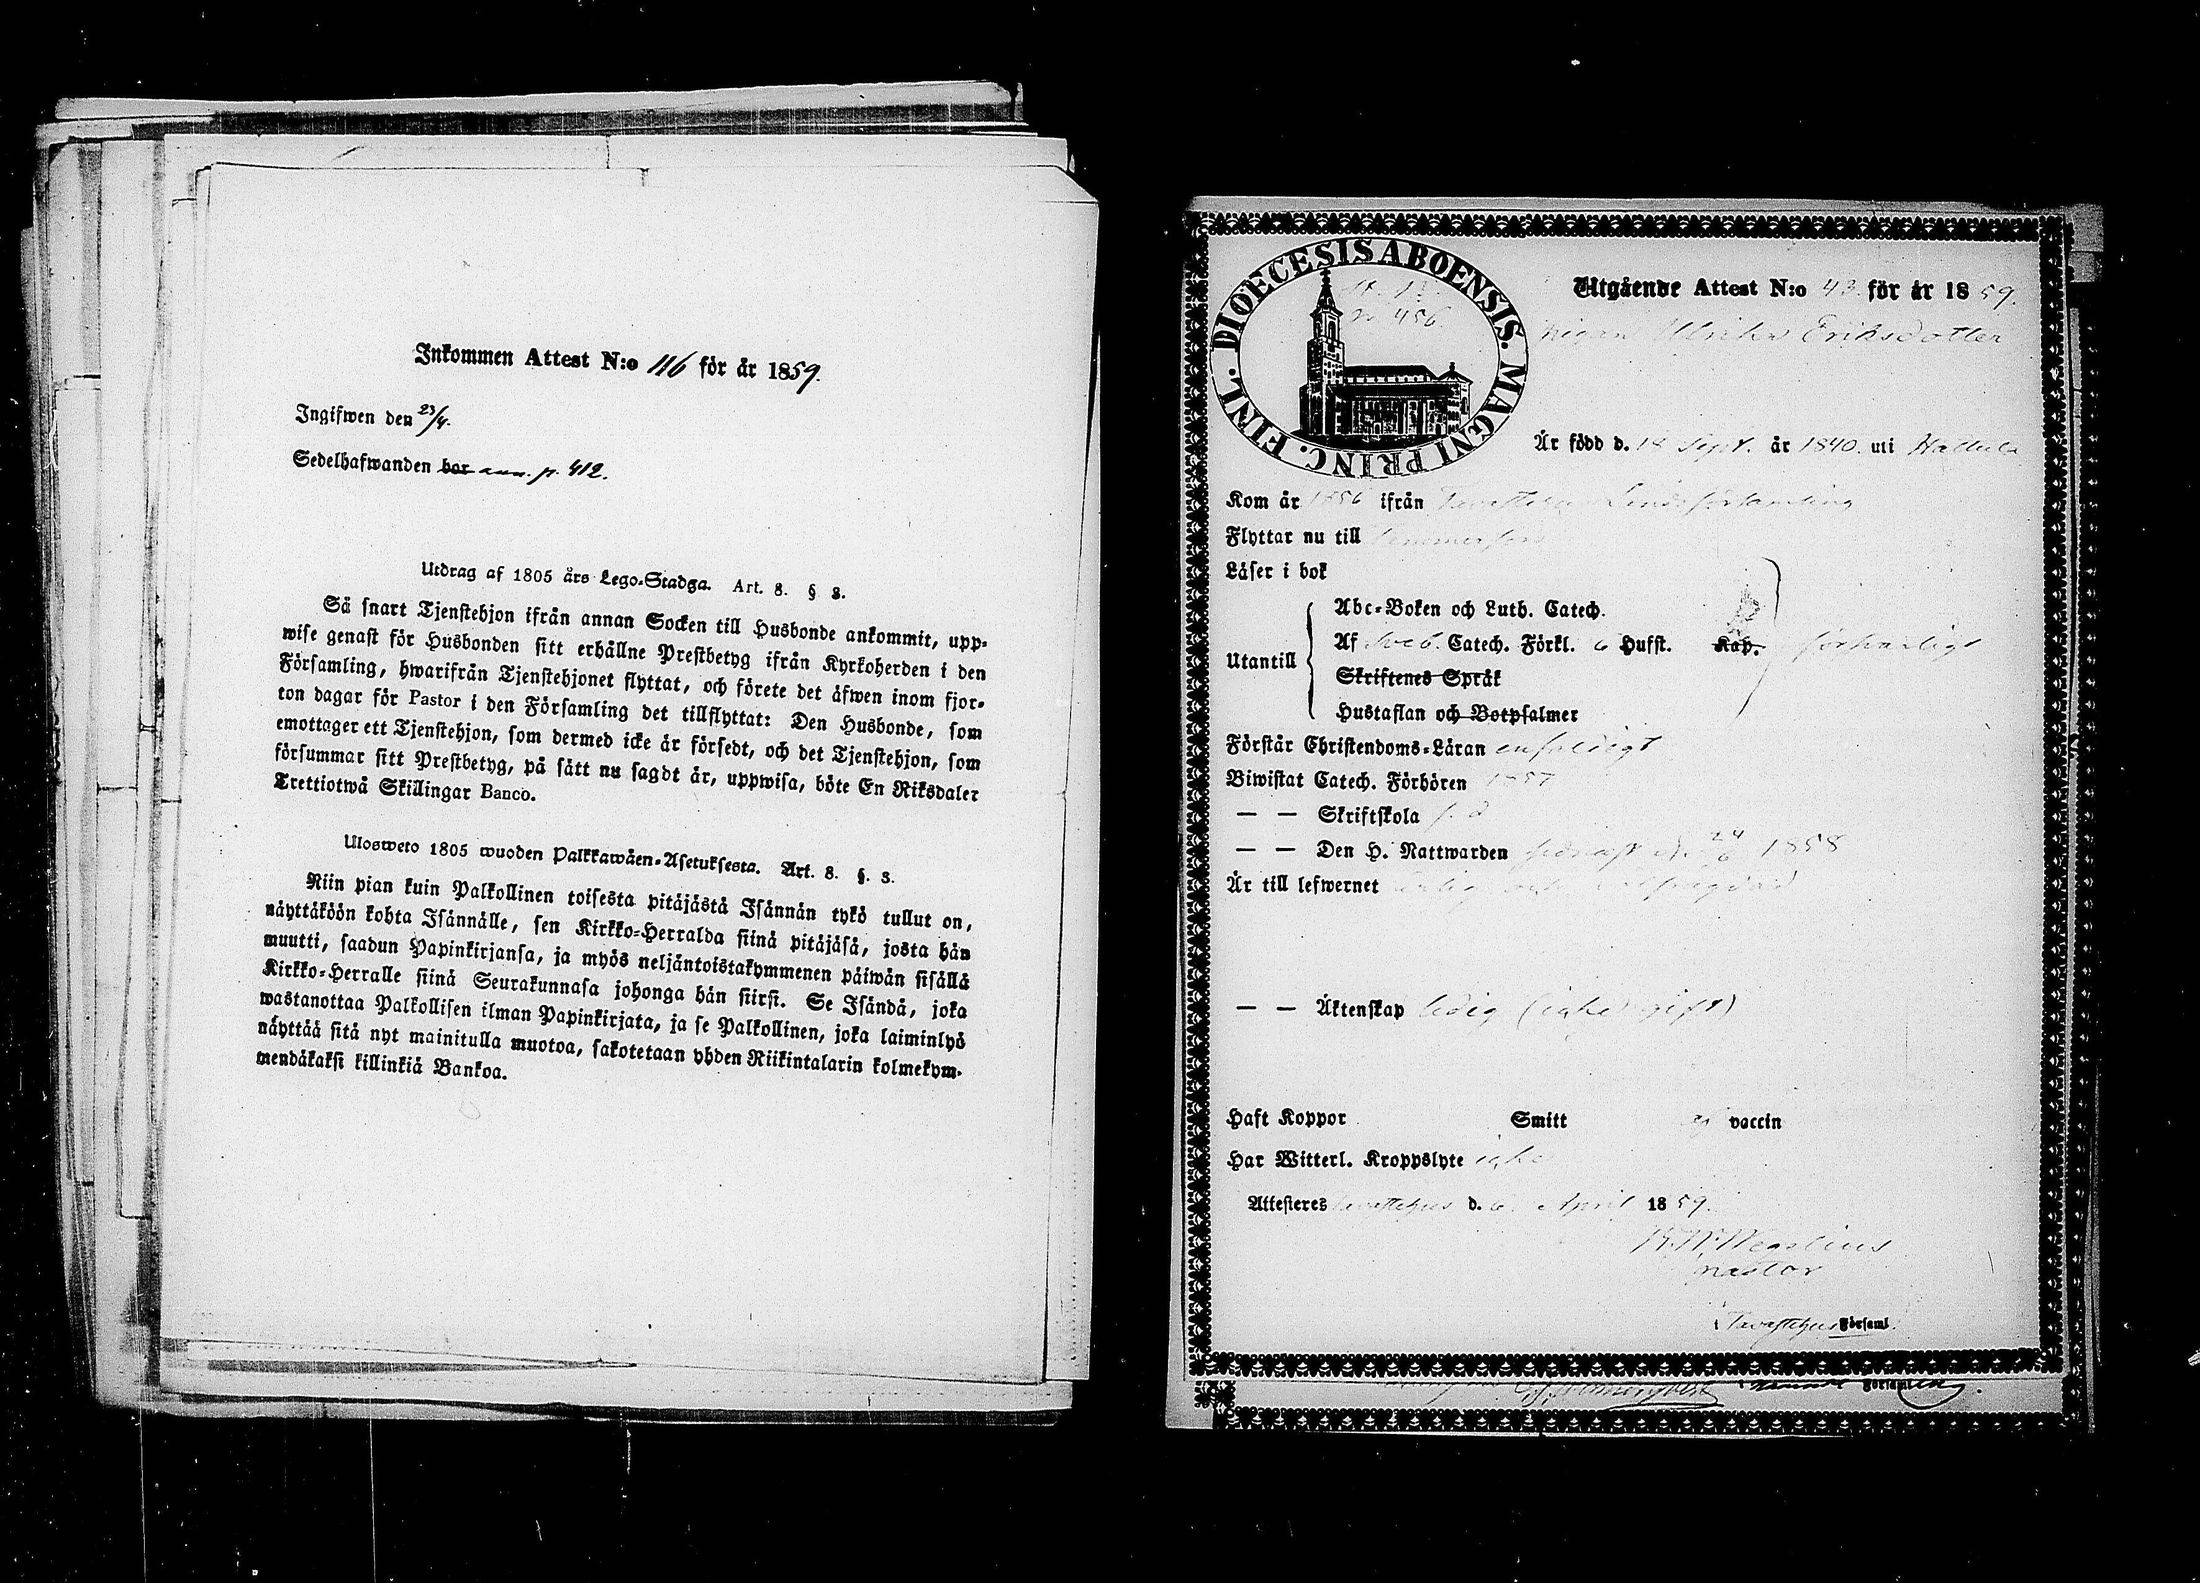 Inkommen Attest N:o 116 för år 1859.
Ingifwen den 23/4.
Sedelhafwanden bor ann. p. 412.
Utdrag af 1805 års Lego-Stadga. Art. 8. § 3.
Så snart Tjenstehjon ifrån annan Socken till Husbonde ankommit, upp-
wise genast för Husbonden sitt erhållne Prestbetyg ifrån Kyrkoherden i den
Församling, hwarifrån Tjenstehjonet flyttat, och förete det äfwen inom fjor-
ton dagar för Pastor i den Församling det tillflyttat: Den Husbonde, som
emottager ett Tjenstehjon, som dermed icke är försedt, och det Tjenstehjon, som
försummar sitt Prestbetyg, på sätt nu sagdt är, uppwisa, böte En Riksdaler
Trettiotwå Skillingar Banco.
Ulosweto 1805 wuoden Palkkawäen-Asetuksesta. Art. 8. §. 3.
Niin pian kuin Palkollinen toisesta pitäjästä Isännän tykö tullut on,
näyttäköön kohta Isännälle, sen Kirkko-Herralda siinä pitäjäsä, josta hän
muutti, saadun Papinkirjansa, ja myös neljäntoistakymmenen päiwän sisällä
Kirkko-Herralle siinä Seurakunnasa johonga hän siirsi. Se Isändä, joka
wastanottaa Palkollisen ilman Papinkirjata, ja se Palkollinen, joka laiminlyö
näyttää sitä nyt mainitulla muotoa, sakotetaan yhden Riikintalarin kolmekym-
mendäkaksi killinkiä Bankoa.
DIOECESIS ABOENSIS. MAGNI PRINC. FINL.
456.
Utgående Attest N:o 43. för år 1859.
Pigan Ulrika Eriksdotter
Är född d. 14 Sept. år 1840. uti Hattula
Kom år 1856 ifrån Tavastehus Landsförsamling
Flyttar nu till Tammerfors
Läser i bok
Utantill
Abc-Boken och Luth. Catech.
Af Sveb. Catech. Förkl. 6 Hufst. Kap. försvarligt
Skriftenes Språk
Hustaflan och Botpsalmer
Förstår Christendoms-Läran enfaldigt
Biwistat Catech. Förhören 1857
— — Skriftskola s. å
— — Den H. Nattwarden sednast d. 24/6 1858
Är till lefwernet ärlig och
— — Äktenskap ledig (icke gift)
Haft Koppor Smitt ej vaccin
Har Witterl. Kroppslyte icke
Attesteres Tavastehus d. 6 April 1859.
Pastor
Tavastehus Församl.
Församl.